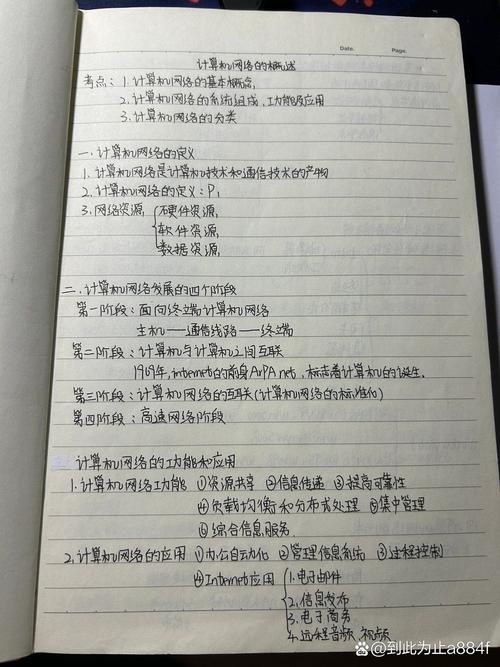 Date. Page.
计算机网络的概述
考点：1.计算机网络的基本概念，
2.计算机网络的系统组成、功能及应用
3.计算机网络的分类
一.计算机网络的定义
1.计算机网络是计算机技术和通信技术的产物
2.计算机网络的定义：P1
3.网络资源 { 硬件资源，
软件资源，
数据资源，
二.计算机网络发展的四个阶段
第一阶段：面向终端计算机网络
主机——通信线路——终端
第二阶段：计算机与计算机之间互联
1969年，internet的前身ArPA net，标志着计算机的诞生.
第三阶段：计算机网络的互联(计算机网络的标准化)
第四阶段：高速网络阶段
三.计算机网络的功能和应用
1.计算机网络功能 ①资源共享 ②信息传递 ③提高可靠性
④负载均衡和分布式处理 ⑤集中管理
⑥综合信息服务
2.计算机网络的应用 ①办公自动化 ②管理信息系统 ③过程控制
④Internet应用 { 1.电子邮件
2.信息发布
3.电子商务
4.远程音频、视频
@到此为止a884f